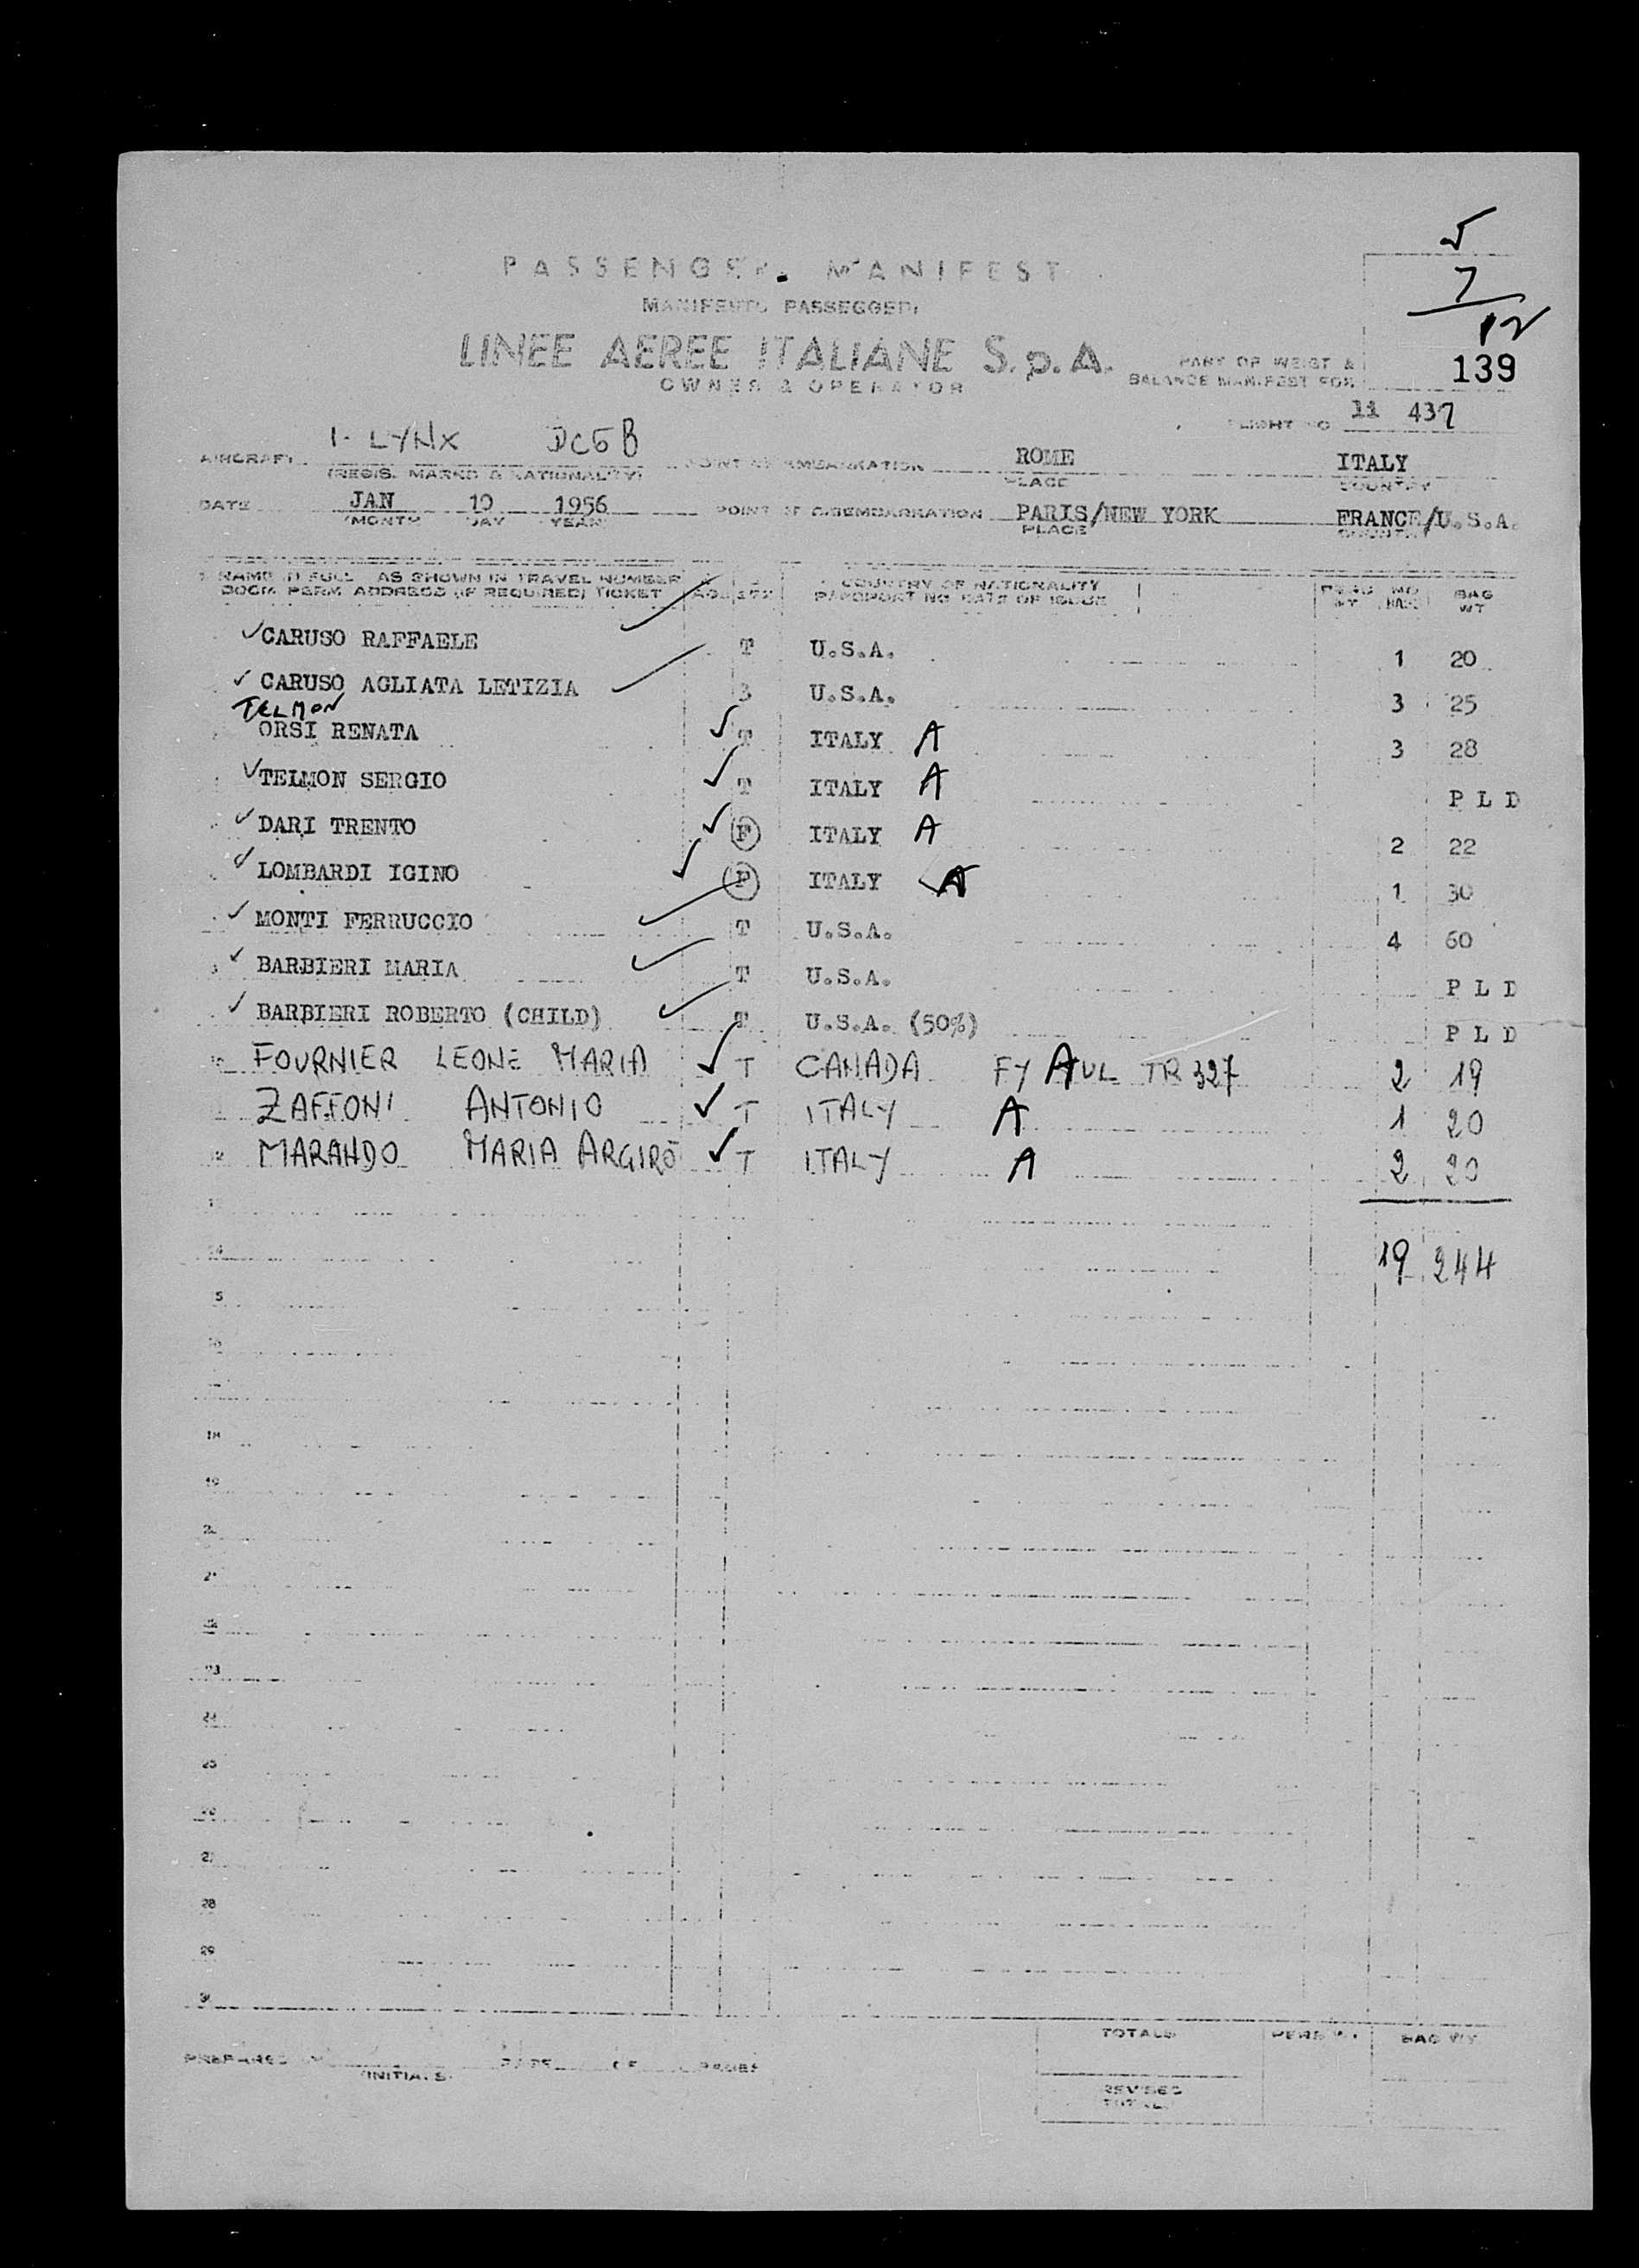 5
7
12
PASSENGER MANIFEST
MANIFESTO PASSEGGERI
LINEE AEREE ITALIANE S.p.A.
OWNER & OPERATOR
PART OF WEIGT &
BALANCE MANIFEST FOR
139
FLIGHT NO 11 437
AIRCRAFT I-LYNX DC6B POINT OF EMBARKATION ROME ITALY
(REGIS. MARKS & NATIONALITY) PLACE COUNTRY
DATE JAN 10 1956 POINT OF DISEMBARKATION PARIS/NEW YORK FRANCE/U.S.A.
MONTH DAY YEAR PLACE COUNTRY
NAME IN FULL AS SHOWN IN TRAVEL NUMBER COUNTRY OF NATIONALITY PERS NO BAG
DOCM PERM ADDRESS (IF REQUIRED) TICKET PASSPORT NO DATE OF ISSUE WT BAGS WT
✓ CARUSO RAFFAELE T U.S.A. 1 20
✓ CARUSO AGLIATA LETIZIA U.S.A. 3 25
TELMON
ORSI RENATA ✓ T ITALY A 3 28
✓ TELMON SERGIO ✓ T ITALY A P L D
✓ DARI TRENTO ✓ F ITALY A 2 22
✓ LOMBARDI IGINO ✓ F ITALY A 1 30
✓ MONTI FERRUCCIO ✓ T U.S.A. 4 60
✓ BARBIERI MARIA ✓ T U.S.A. P L D
✓ BARBIERI ROBERTO (CHILD) ✓ T U.S.A. (50%) P L D
10 FOURNIER LEONE MARIA ✓ T CANADA FY AUL TR 327 2 19
ZAFFONI ANTONIO ✓ T ITALY A 1 20
12 MARANDO MARIA ARGIRO ✓ T ITALY A 2 20
14 19 244
5
18
19
22
23
24
25
26
28
29
TOTALS PERS WT BAG WT
PREPARED BY DATE OF
(INITIALS)
REVISED
TOTAL